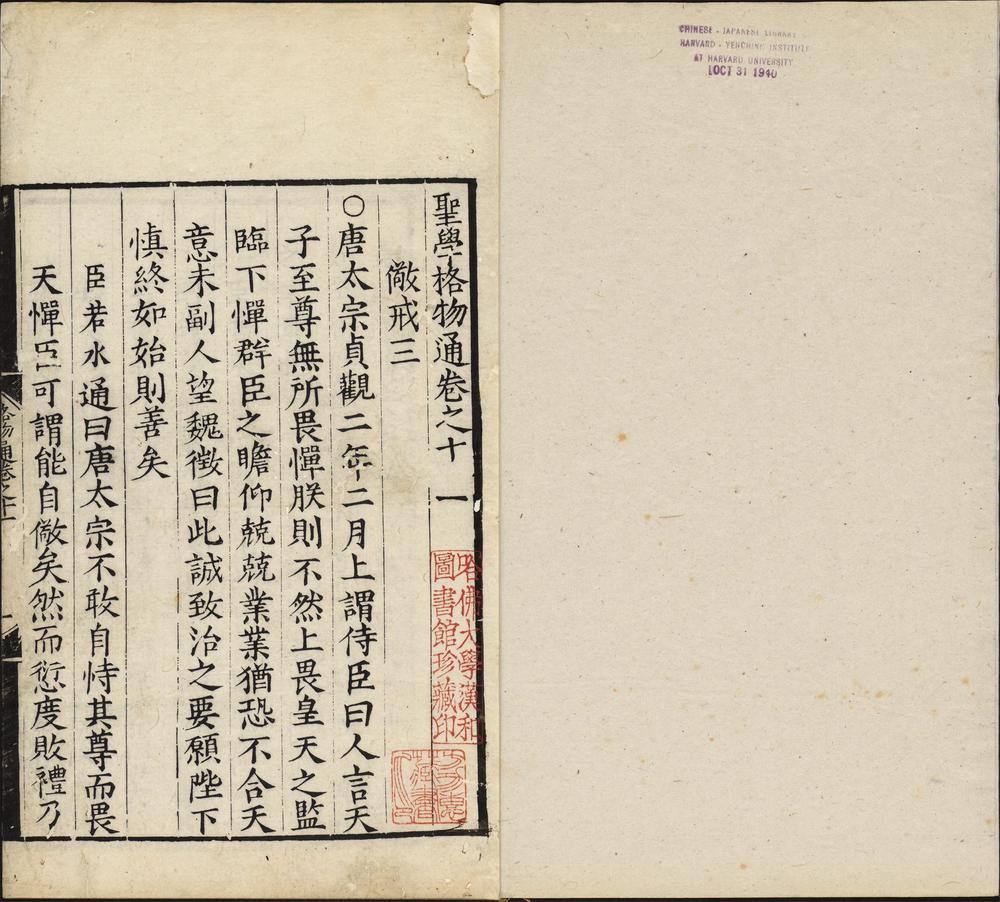 CHINESE - JAPANESE LIBRARY
HARVARD - YENCHING INSTITUTE
AT HARVARD UNIVERSITY
OCT 31 1940
聖學格物通卷之十一
儆戒三
○唐太宗貞觀二年二月上謂侍臣曰人言天
子至尊無所畏憚朕則不然上畏皇天之監
臨下憚群臣之瞻仰兢兢業業猶恐不合天
意未副人望魏徵曰此誠致治之要願陛下
慎終如始則善矣
臣若水通曰唐太宗不敢自恃其尊而畏
天憚臣可謂能自儆矣然而愆度敗禮乃
哈佛大學漢和
圖書館珍藏印
格物通卷之十一
一